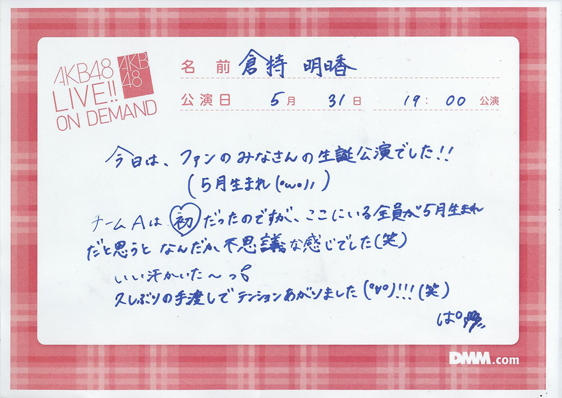 AKB48
LIVE!!
ON DEMAND
AKB
48
名前 倉持 明日香
公演日 5月 31日 19:00 公演
今日は、ファンのみなさんの生誕公演でした!!
(5月生まれ(°ω°))
チームAは初だったのですが、ここにいる全員が5月生まれ
だと思うと なんだか不思議な感じでした(笑)
いい汗かいた〜っ
久しぶりの手渡しでテンションあがりました(°∀°)!!!(笑)
DMM.com